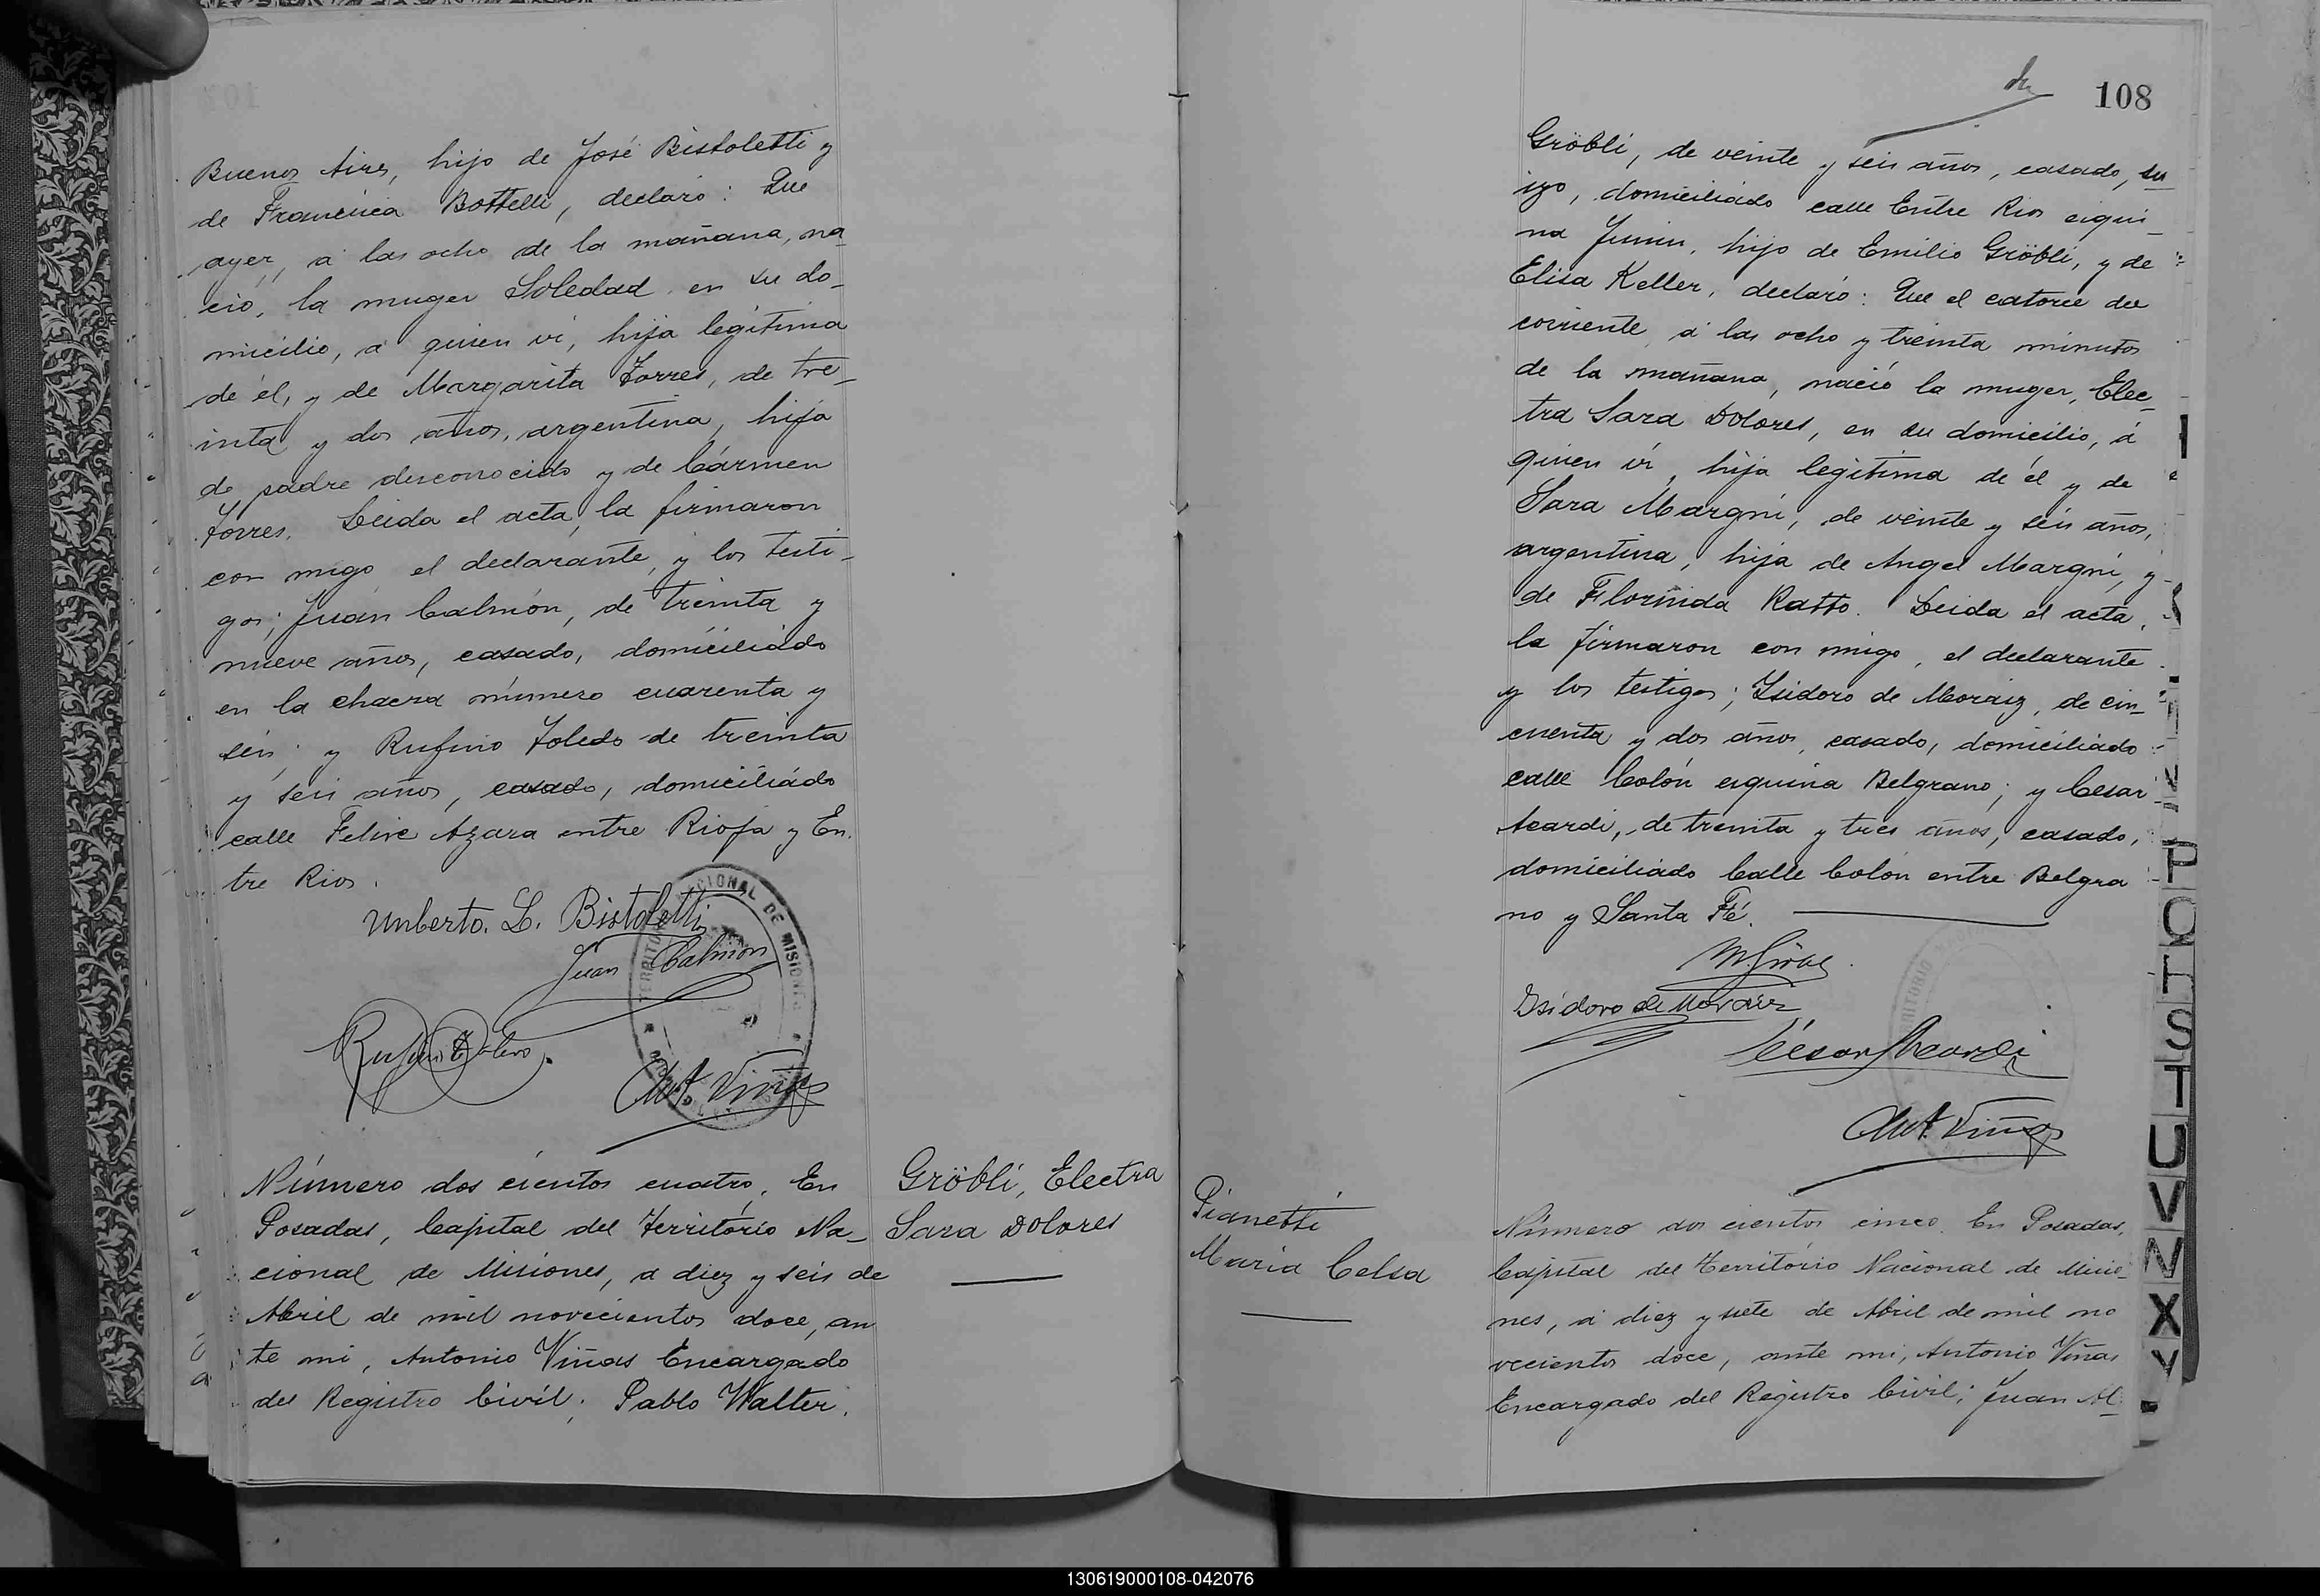 Buenos Aires, hijo de José Bistoletti y
de Francisca Bottelli, declaró: Que
ayer, á las ocho de la mañana, na
ció, la muger Soledad en su do-
micilio, á quien ví, hija legítima
de él, y de Margarita Torres, de tre-
inta y dos años, argentina, hija
de padre desconocido y de Cármen
Torres. Leida el acta, la firmaron
con migo el declarante, y los testi-
gos; Juán Calmón, de treinta y
nueve años, casado, domiciliado
en la chacra número cuarenta y
seis; y Rufino Toledo de treinta
y seis años, casado, domiciliádo
calle Felipe Azara entre Rioja y En.
tre Rios.
Umberto. L. Bistoletti
Juan Calmon
Rufino Toledo.
Ant. Viñas
Número dos cientos cuatro. En
Posadas, Capital del Território Na-
cional de Misiones, a diez y seis de
Abril de mil novecientos doce, an
te mi, Antonio Viñas Encargado
del Registro Civil; Pablo Walter.
Gröbli, Electra
Sara Dolores
108
Gröbli, de veinte y seis años, casado, su
izo, domiciliádo calle Entre Rios esqui-
na Junin, hijo de Emilio Gröbli, y de
Elisa Keller, declaró: Que el catorce del
corriente á las ocho y treinta minutos
de la mañana, nació la muger, Elec-
tra Sara Dolores, en su domicilio, á
quien ví, hija legítima de él y de
Sara Margni, de veinte y seis años,
argentina, hija de Angel Margni, y
de Florinda Ratto. Leida el acta,
la firmaron con migo, el declarante
y los testigos; Isidoro de Moraiz, de cin-
cuenta y dos años, casado, domiciliado
calle Colón esquina Belgrano; y Cesar
Acardi, de treinta y tres años, casado,
domiciliádo Calle Colón entre Belgra
no y Santa Fé.
Isidoro de Moraiz
César Acardi
Ant. Viñas
Pianetti
Maria Celsa
Número dos cientos cinco. En Posadas,
Capital del Território Nacional de Misio-
nes, á diez y siete de Abril de mil no
vecientos doce, ante mi, Antonio Viñas
Encargado del Registro Civil; Juan Al-
P
Q
S
T
U
V
X
Y
130619000108-042076